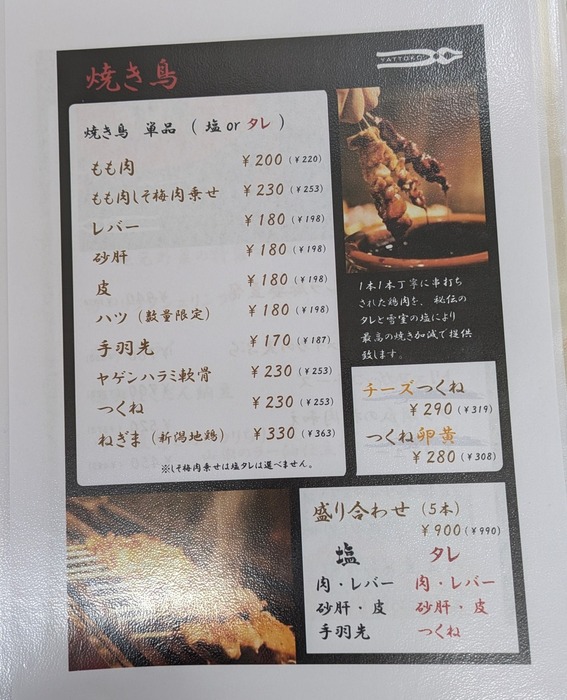 焼き鳥
YATTOKO
焼き鳥 単品 ( 塩 or タレ )
もも肉 ¥200 (¥220)
もも肉しそ梅肉乗せ ¥230 (¥253)
レバー ¥180 (¥198)
砂肝 ¥180 (¥198)
皮 ¥180 (¥198)
ハツ (数量限定) ¥180 (¥198)
手羽先 ¥170 (¥187)
ヤゲンハラミ軟骨 ¥230 (¥253)
つくね ¥230 (¥253)
ねぎま (新潟地鶏) ¥330 (¥363)
※しそ梅肉乗せは塩タレは選べません。
1本1本丁寧に串打ち
された鶏肉を、秘伝の
タレと雪室の塩により
最高の焼き加減で提供
致します。
チーズつくね
¥290 (¥319)
つくね卵黄
¥280 (¥308)
盛り合わせ (5本)
¥900 (¥990)
塩 タレ
肉・レバー 肉・レバー
砂肝・皮 砂肝・皮
手羽先 つくね